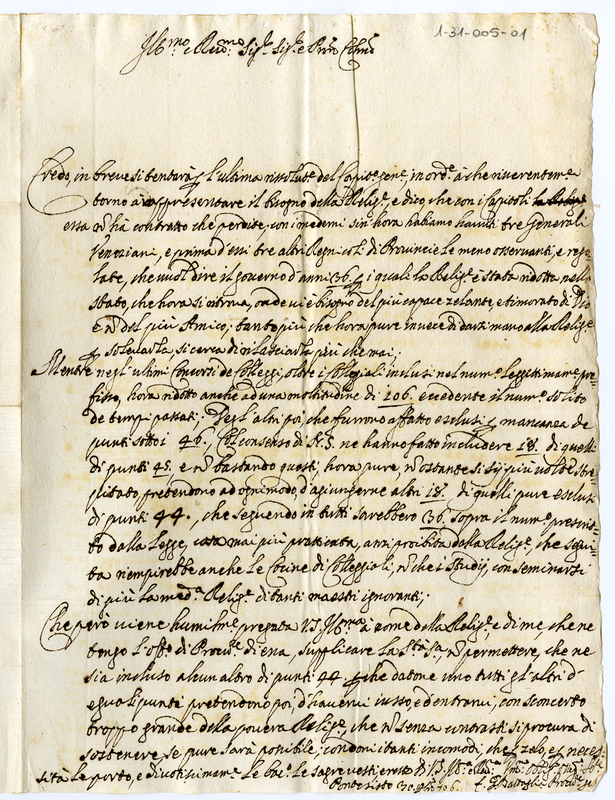 1-31-005-01
Ill.mo e Rev.mo Sig.r Sig.r e Pron Col.mo
Credo, in breve si tentarà l'ultima rissolut.e del Capit.o gen.e, in ord.e à che riverentem.e
torno à rappresentare il bisogno della Relig.e, e dico, che con i Capitoli
essa nõ hà contratto che perdite, con i medemi sin hora habiamo havuti tre Generali
Veneziani, e prima d'essi tre altri Regnicoli di Provincie le meno osservanti, e rego
late, che vuol dire il governo d'anni 36. i quali la Relig.e è stata ridotta nello
stato, che hora si ritrova, onde vi è bisogno del più capace zelante, e timorato di Dio
e nõ del più Amico; tanto più che hora pure invece di darsi mano alla Relige
solevarla, si cerca di rilasciarla più che mai;
Mentre negl'ultimi Concorsi de Collegij, oltre i Collegiali inclusi nel num.o legittimam.e pre
fisso, hora ridotto anche ad una moltitudine di 106. eccedente il num.o solito
de tempi passati; Degl'altri poi che furono affatto esclusi mancanza de
punti sotto i 46., Col consenso di N.S. ne hanno fatto includere 18. di quelli
di punti 45. e nõ bastando questi, hora pure, nõ ostante si sij più volte stre
pitato, pretendono ad ogni modo, d'agiungerne altri 18. di quelli pure esclusi
di punti 44., che seguendo in tutti sarebbero 36. sopra il num.o prescrit
to dalla Legge, cosa mai più praticata, anzi proibita dalla Relig.e, che segui
ta riempirebbe anche le Cocine di Collegiali, nõ che i Studij, con seminarsi
di più la med.a Relig.e di tanti maestri ignoranti;
Che però viene humilm.e pregata V.S. Ill.ma à nome della Relig.e, e di me, che ne
tengo l'off.o di Procu.re di essa, supplicare La Stà Sa., nõ permettere, che ne
sia incluso alcun altro di punti 44. che datone uno tutti gl'altri d'
eguali punti pretendono poi, d'havervi iusso ed entrarvi, con sconcerto
troppo grande della povera Relig.e, che nõ senza contrasti si procura di
sostenere se pure sarà possibile; condoni i tanti incomodi, che zelo, e neces
sità le porto, e divotissimam.e le bacio le sagre vesti, resto di V.S. Ill.ma e Rev.ma